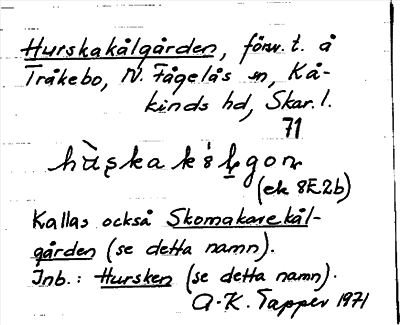 Hurskakålgården, förw. t. å
Tråkebo, N. Fågelås sn, Kå-
kinds hd, Skar. l.
71
(ek 8E2b)
Kallas också Skomakarekål-
gården (se detta namn).
Inb.: Hursken (se detta namn).
A-K. Tapper 1971